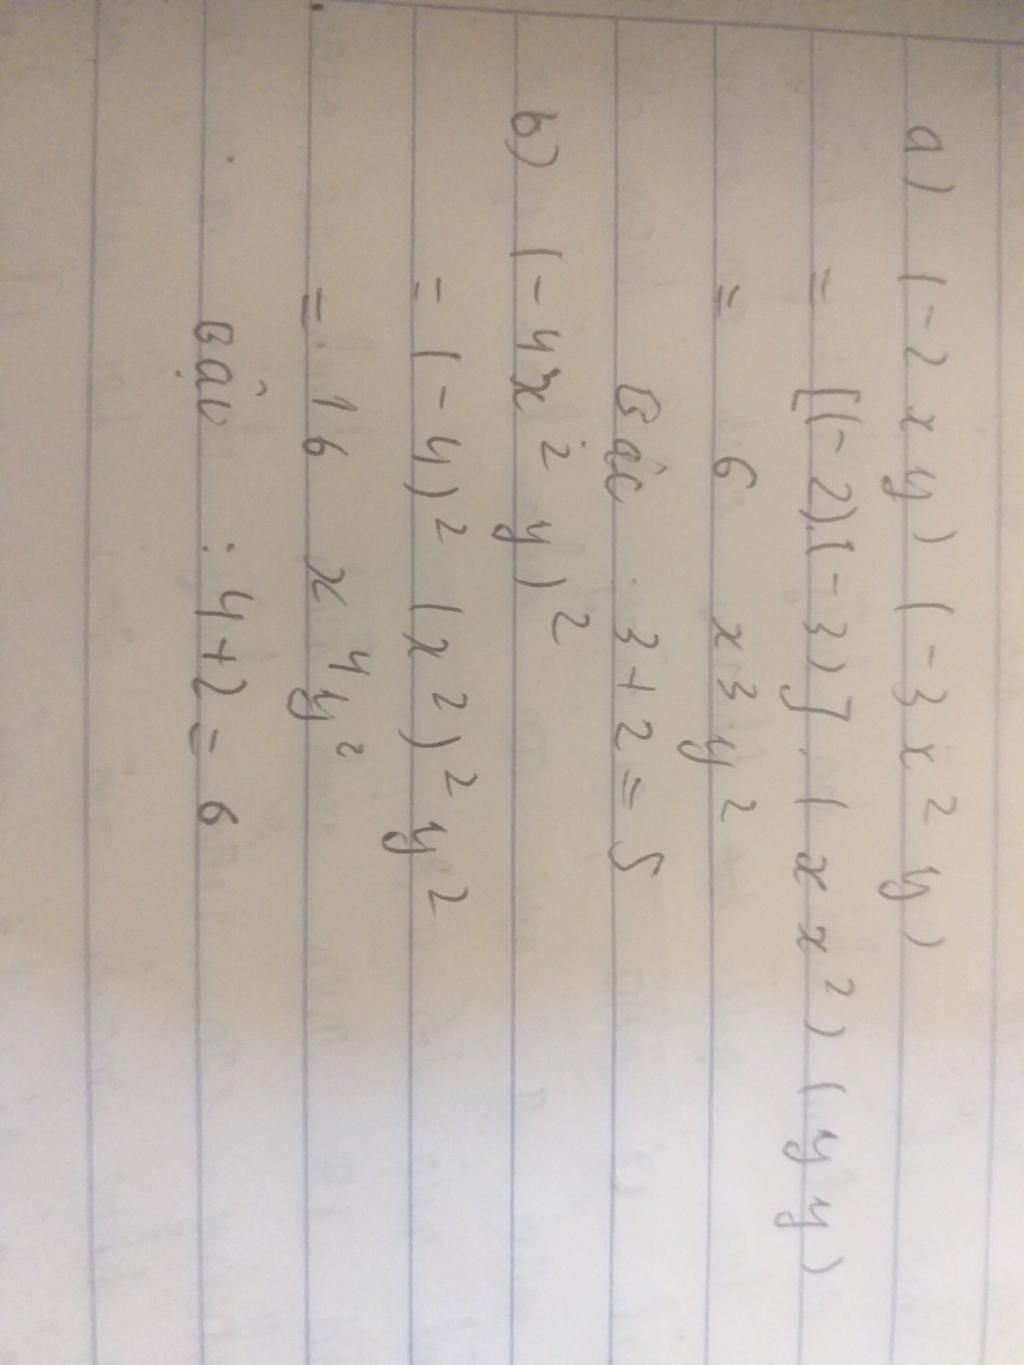 a) (-2xy)(-3x²y)
= [(-2).(-3)].(xx²)(yy)
= 6 x³y²
Bậc 3+2=5
b) (-4x²y)²
= (-4)² (x²)² y²
= 16 x⁴y²
Bậc : 4+2=6